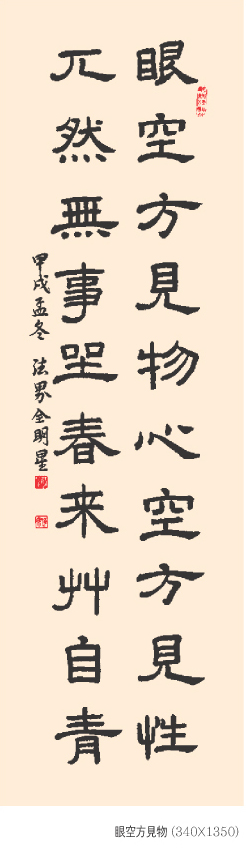 眼空方見物心空方見性
兀然無事坐春来艸自青
甲戌孟冬 法界金明星
眼空方見物 (340X1350)